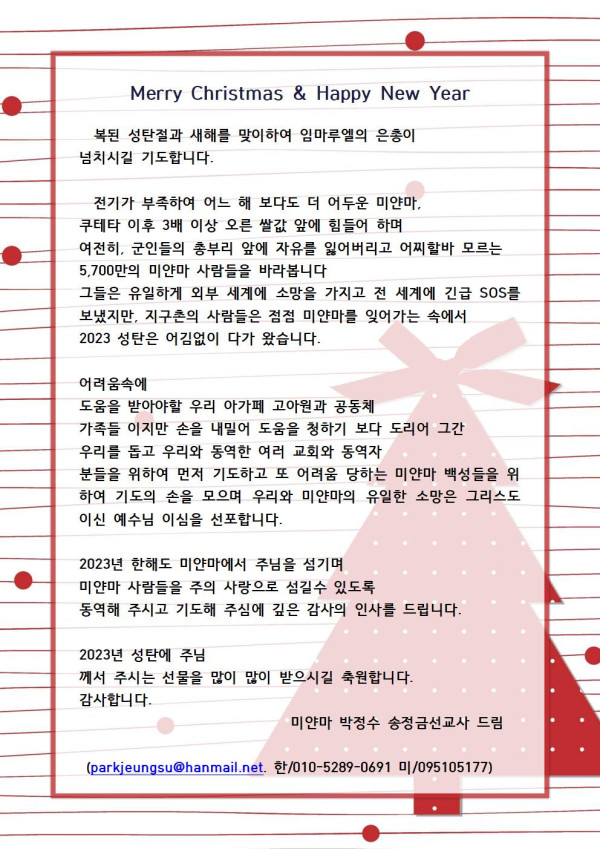 Merry Christmas & Happy New Year
복된 성탄절과 새해를 맞이하여 임마루엘의 은총이
넘치시길 기도합니다.
전기가 부족하여 어느 해 보다도 더 어두운 미얀마,
쿠테타 이후 3배 이상 오른 쌀값 앞에 힘들어 하며
여전히, 군인들의 총부리 앞에 자유를 잃어버리고 어찌할바 모르는
5,700만의 미얀마 사람들을 바라봅니다
그들은 유일하게 외부 세계에 소망을 가지고 전 세계에 긴급 SOS를
보냈지만, 지구촌의 사람들은 점점 미얀마를 잊어가는 속에서
2023 성탄은 어김없이 다가 왔습니다.
어려움속에
도움을 받아야할 우리 아가페 고아원과 공동체
가족들 이지만 손을 내밀어 도움을 청하기 보다 도리어 그간
우리를 돕고 우리와 동역한 여러 교회와 동역자
분들을 위하여 먼저 기도하고 또 어려움 당하는 미얀마 백성들을 위
하여 기도의 손을 모으며 우리와 미얀마의 유일한 소망은 그리스도
이신 예수님 이심을 선포합니다.
2023년 한해도 미얀마에서 주님을 섬기며
미얀마 사람들을 주의 사랑으로 섬길수 있도록
동역해 주시고 기도해 주심에 깊은 감사의 인사를 드립니다.
2023년 성탄에 주님
께서 주시는 선물을 많이 많이 받으시길 축원합니다.
감사합니다.
미얀마 박정수 송정금선교사 드림
(parkjeungsu@hanmail.net. 한/010-5289-0691 미/095105177)